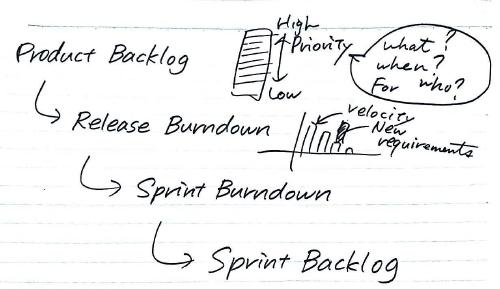 High
Product Backlog
Priority
Low
what?
when?
For who?
velocity
New
requirements
Release Burndown
Sprint Burndown
Sprint Backlog